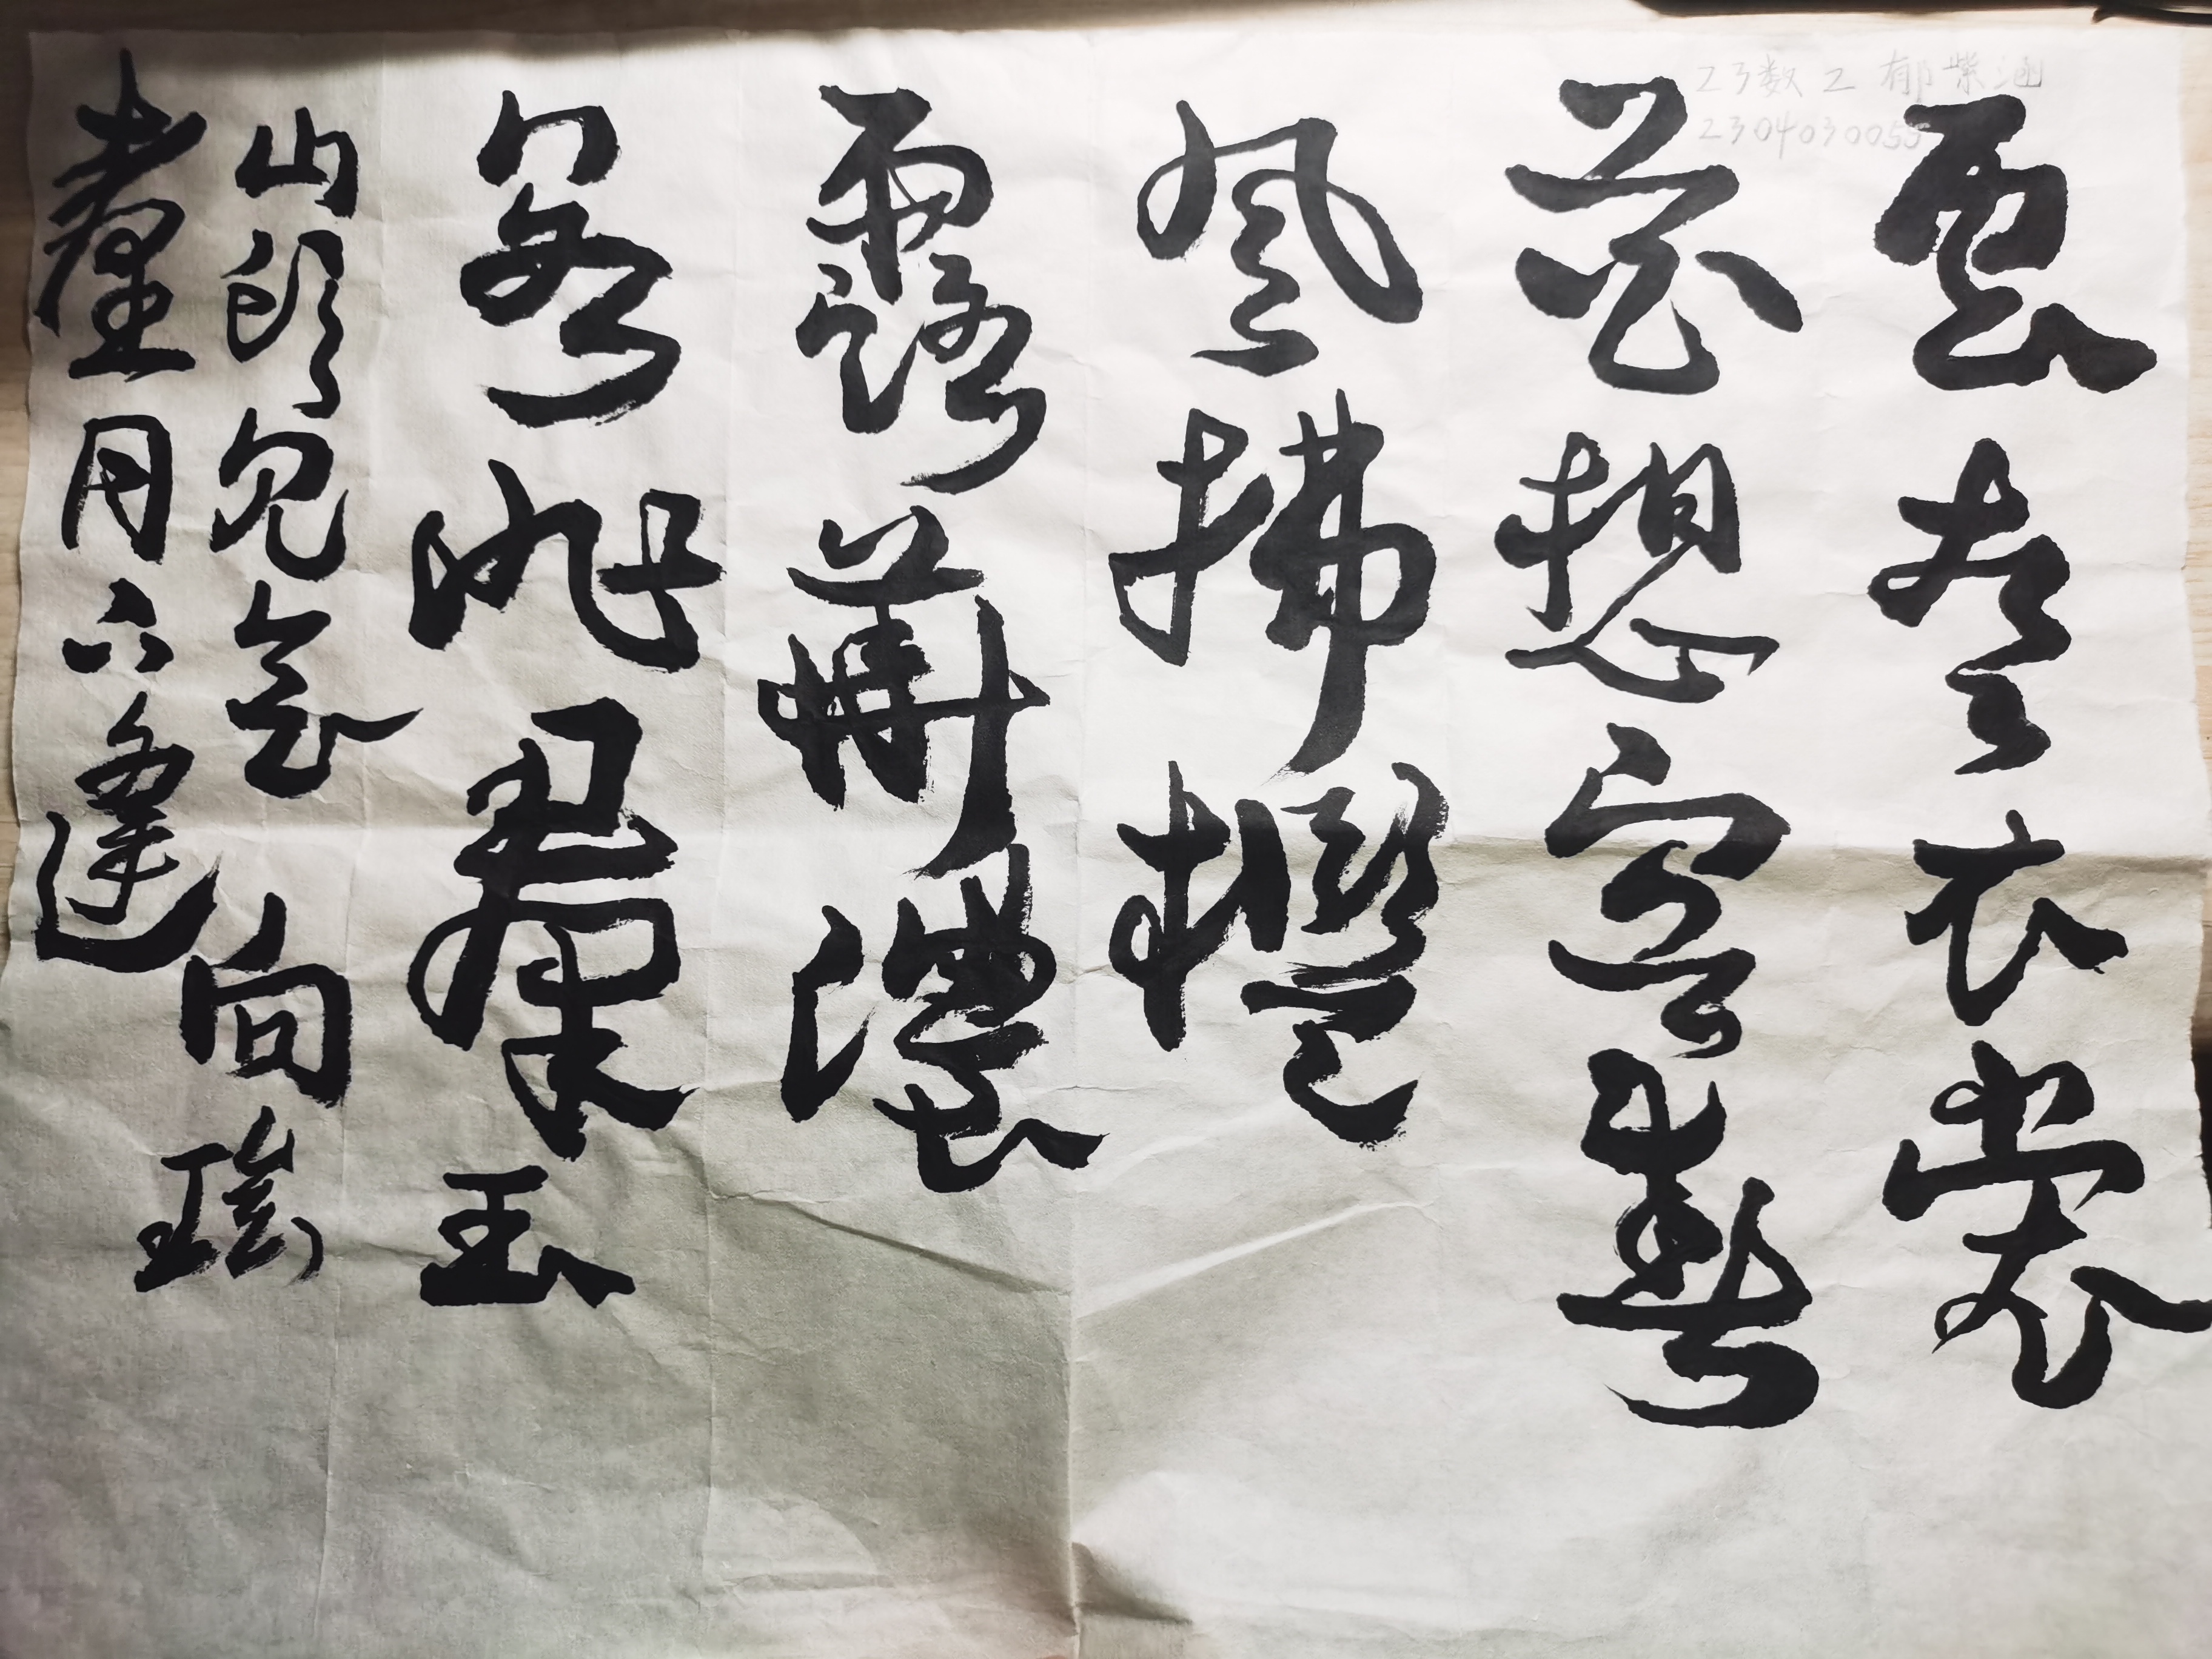 23数2 郁紫涵
2304030055
雲想衣裳
花想容春
風拂檻
露華濃
若非羣玉
山頭見會向瑤
臺月下逢